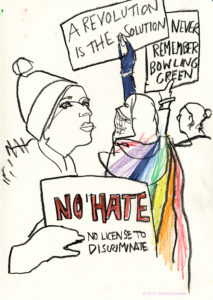 A REVOLUTION
IS THE SOLUTION
NEVER
REMEMBER
BOWLING
GREEN
NO HATE
NO LICENSE TO
DISCRIMINATE